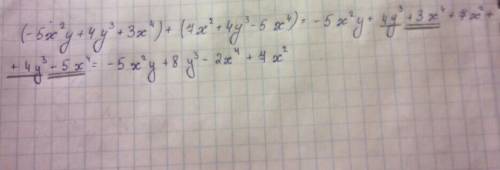 (-5x²y+4y³+3x⁴)+(7x²+4y³-5x⁴)=-5x²y+4y³+3x⁴+7x²+
+4y³-5x⁴=-5x²y+8y³-2x⁴+7x²